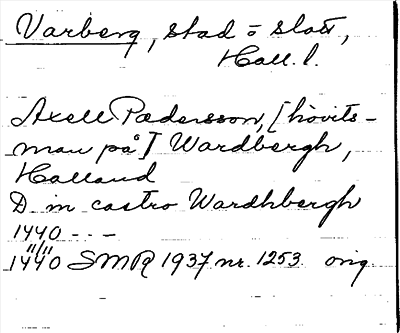 Varberg, stad o slott,
Hall. l.
Axell Pædersson, [hövits-
man på] Wardbergh,
Halland
D in castro Wardhbergh
1440 - - -
11/11
1440 SMR 1937 nr. 1253 orig